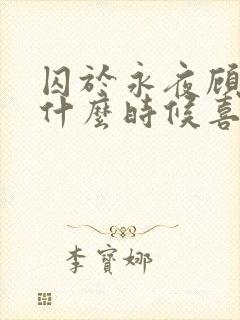 囚於永夜顾
什麼時候喜
李寶娜